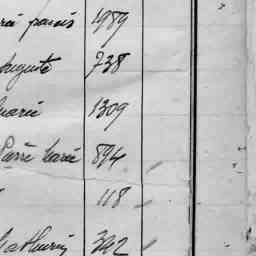 1989
Auguste 738
Marie 1309
Pierre Marie 894
118
Mathurin 392